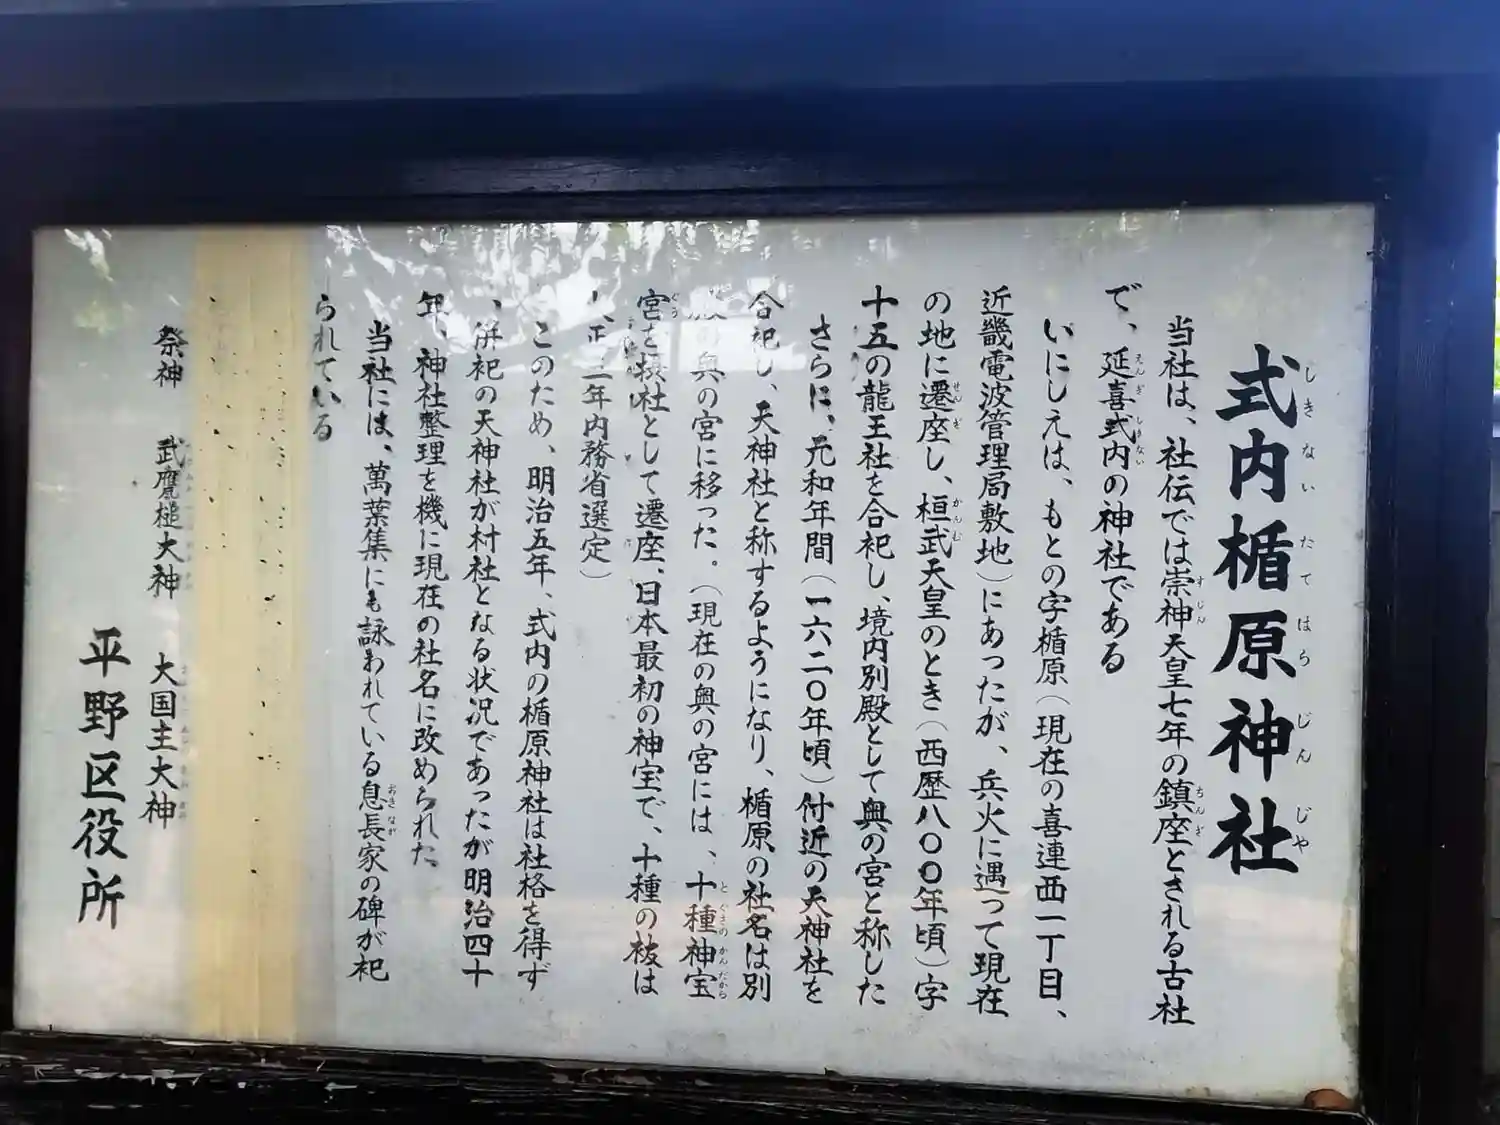 式内楯原神社
しきないたてはらじんじや
当社は、社伝では崇神天皇七年の鎮座とされる古社
で、延喜式内の神社である
いにしえは、もとの字楯原(現在の喜連西一丁目、
近畿電波管理局敷地)にあったが、兵火に遇って現在
の地に遷座し、桓武天皇のとき(西歴八〇〇年頃)字
十五の龍王社を合祀し、境内別殿として奥の宮と称した
さらに、元和年間(一六二〇年頃)付近の天神社を
合祀し、天神社と称するようになり、楯原の社名は別
奥の宮に移った。(現在の奥の宮には、十種神宝
宮を摂社として遷座、日本最初の神宝で、十種の祓は
正二年内務省選定)
このため、明治五年、式内の楯原神社は社格を得ず
、併祀の天神社が村社となる状況であったが明治四十
年、神社整理を機に現在の社名に改められた
当社には、萬葉集にも詠われている息長家の碑が祀
られている
祭神 武甕槌大神 大国主大神
平野区役所